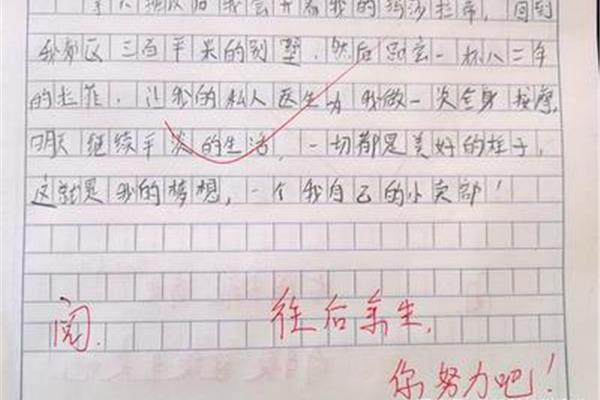 我会开着我的玛莎拉蒂，回到
我郊区三百平米的别墅，然后一杯八二年
的拉菲，让我的私人医生为我做一次全身按摩，
明天继续平淡的生活，一切都是美好的样子，
这就是我的梦想，一个我自己的小卖部！
阅. 往后余生，
你努力吧！